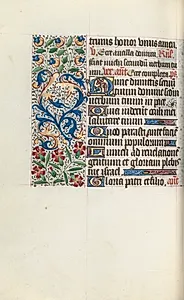 honor
ancilla domini
fiat michi secundū verbum tu
um
unc dimittis seruū
tuum domine secundū
verbum tuum in pace
Quia viderunt oculi mei
salutare tuum
Quod parasti ante faciē
omnium populorum
Lumen ad reuelationē
gentium et gloriam plebis
tue israel
Gloria patri et filio